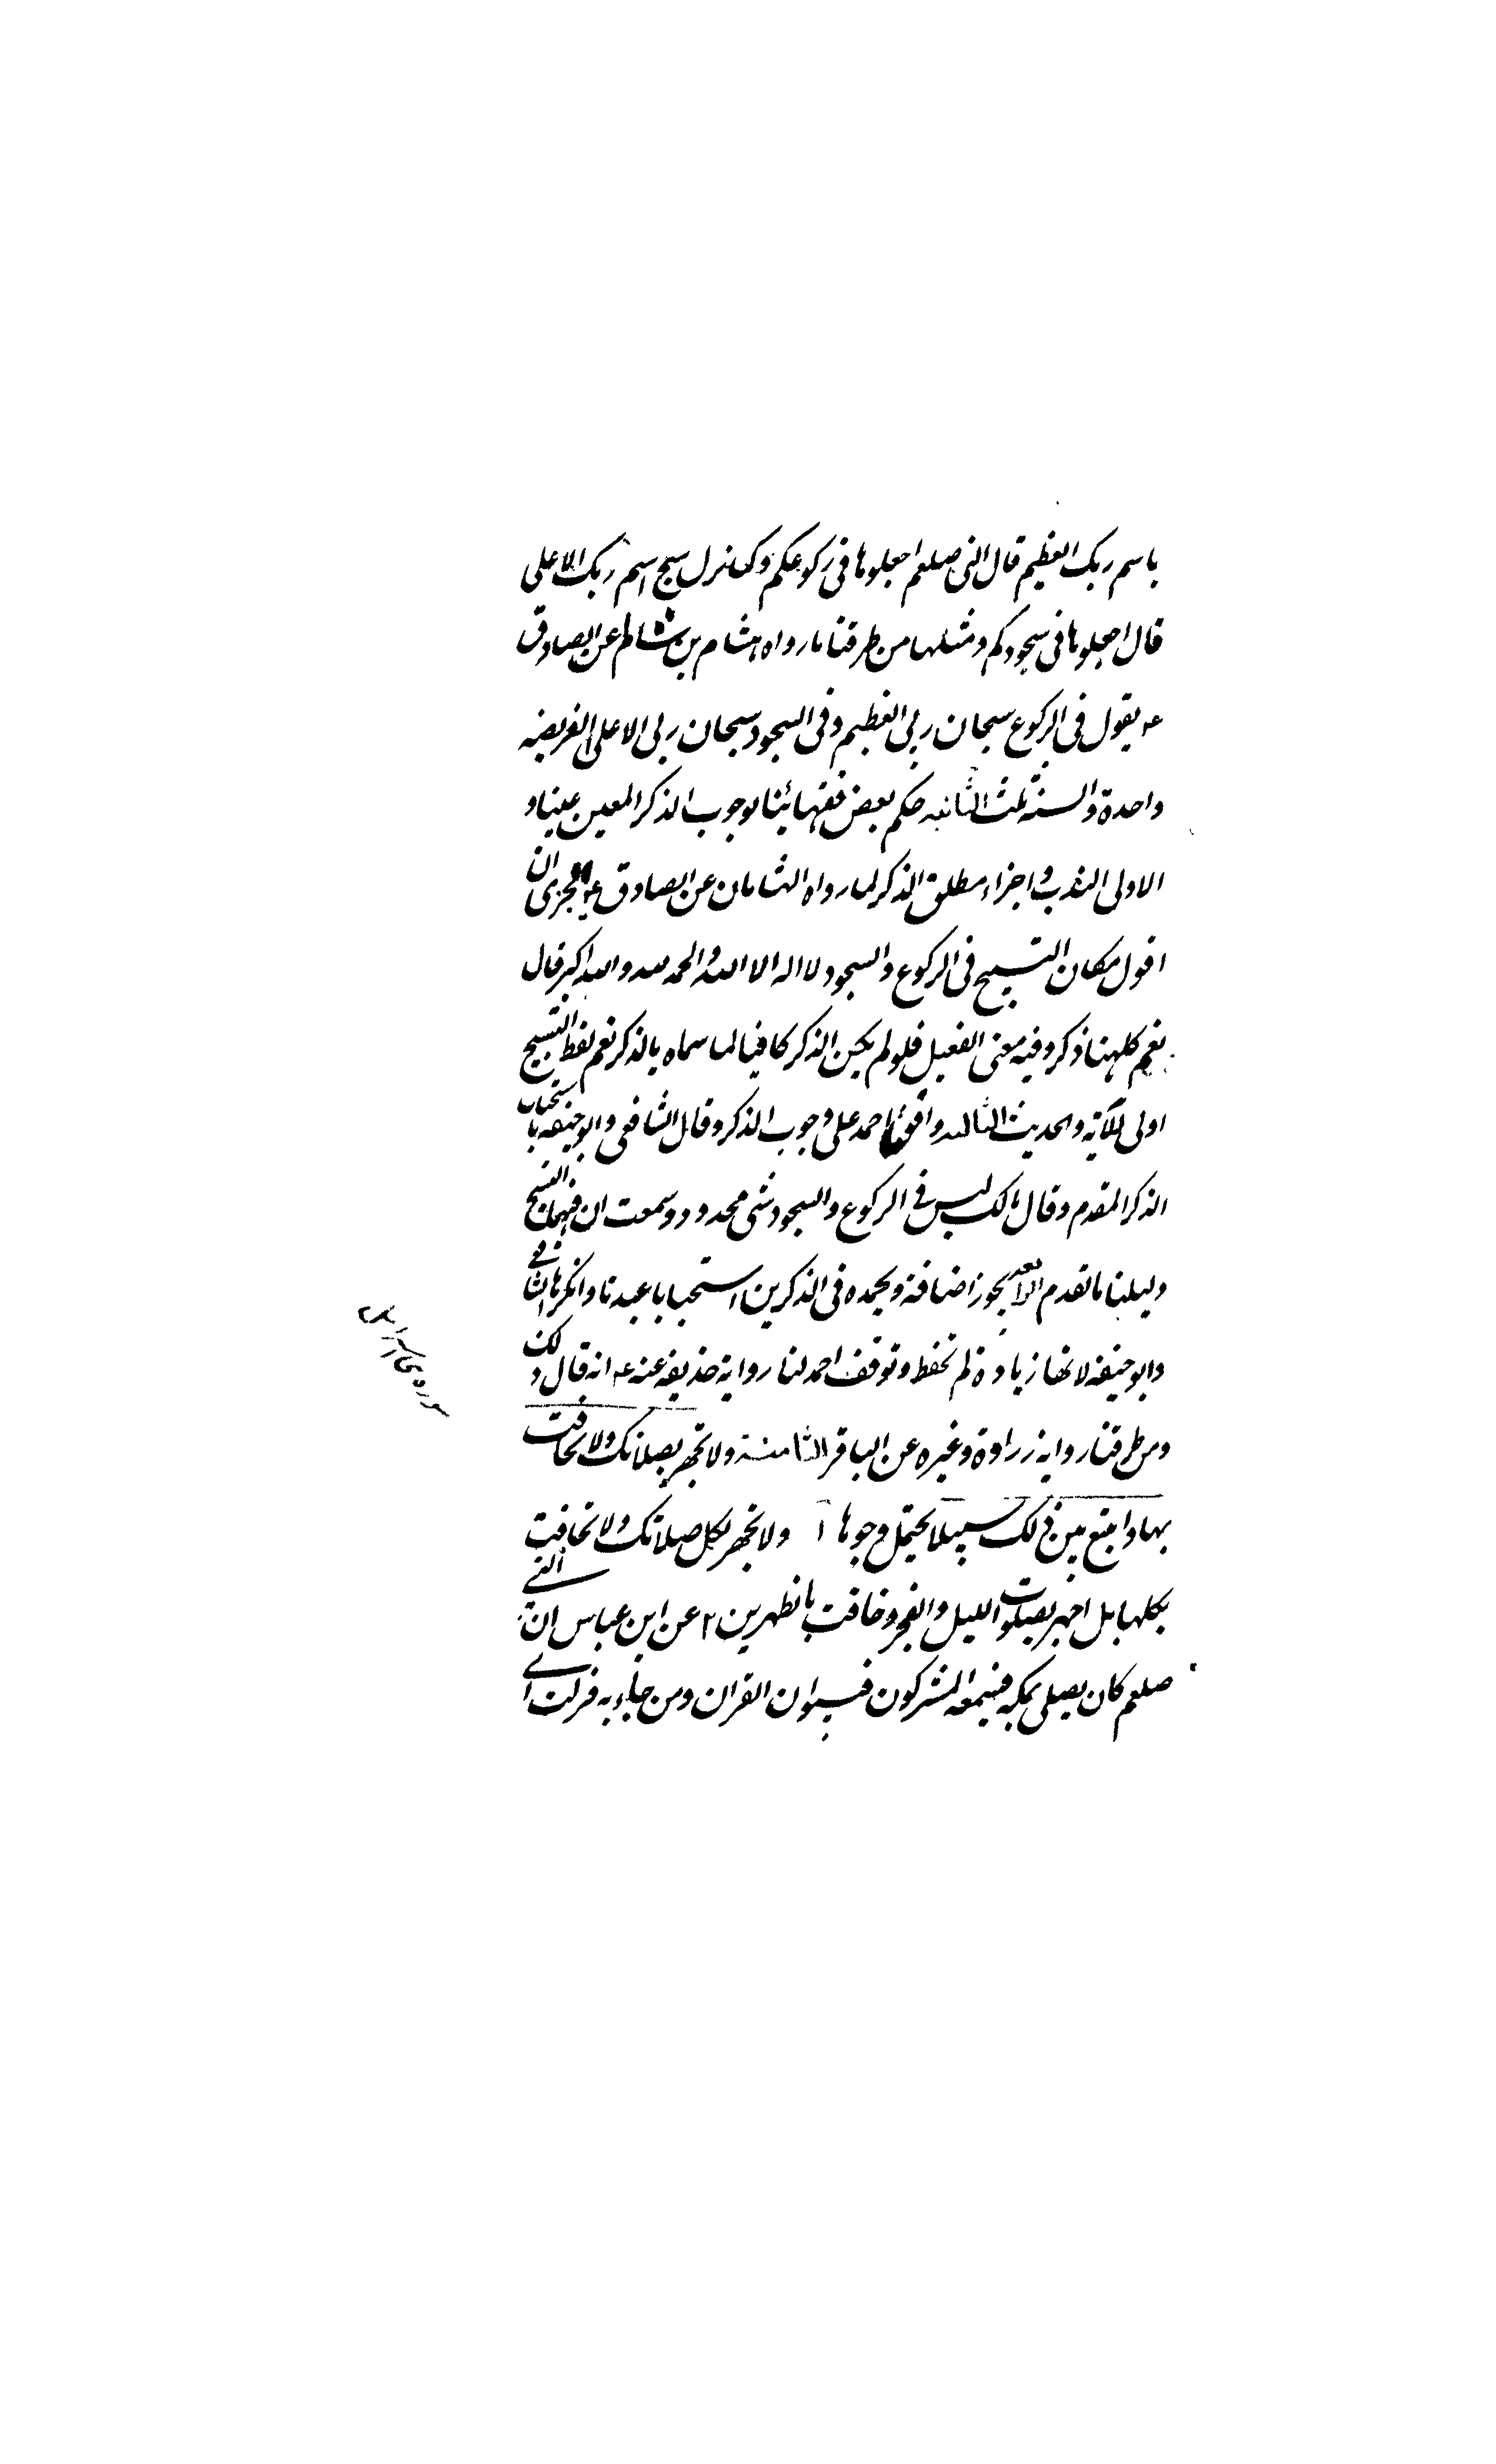 باسم ربك العظيم قال النبى صلعم اجعلوها فى ركوعكم ولما نزل سبح اسم ربك الاعلى
قال اجعلوها فى سجودكم ومثلها من طرقنا ما رواه هشام بن سالم عن الصادق
ع يقول فى الركوع سبحان ربى العظيم وفى السجود سبحان ربى الاعلى الفريضه
واحدة والسنة ثلث الثانيه حكم بعض فقهائنا بوجوب الذكر المعين عينا و
الاولى الندب واجزاء مطلق الذكر لما رواه الهشامان عن الصادق ع ايجزى ان
اقول مكان التسبيح فى الركوع والسجود لا اله الا الله والحمد لله والله اكبر قال
نعم كلهنا ذكر وفيه معنى التعليل فلو لم يكن الذكر كافيا لما سماه بالذكر نعم لفظ التسبيح
اولى للآية والحديث الثالثه وافقنا احمد على وجوب الذكر وقال الشافعى وابوحنيفه باستحباب
الذكر المقدم وقال مالك ليس فى الركوع والسجود شى محدود وسمعت ان فيهما التسبيح
دليلنا ما تقدم الرابعه يجوز اضافة وبحمده فى الذكرين استحبابا عندنا وانكرها الشافعى
وابوحنيفة لانها زيادة لم تحفظ وتوقف احمد لنا رواية حذيفه عنه ع انه قال ذلك
ومن طرقنا رواية زرارة وغيره عن الباقر الثامنة ولا تجهر بصلاتك ولا تخافت
بها وابتغ بين ذلك سبيلا يحتمل وجوها ا ولا تجهر بكل صلاتك ولا تخافت
بكلها بل اجهر بصلوت الليل والفجر وخافت بالظهرين ٢ عن ابن عباس ان النبى
صلعم كان يصلى بمكة فيسمعه المشركون فيسبون القران ومن جاء به فنزلت اى